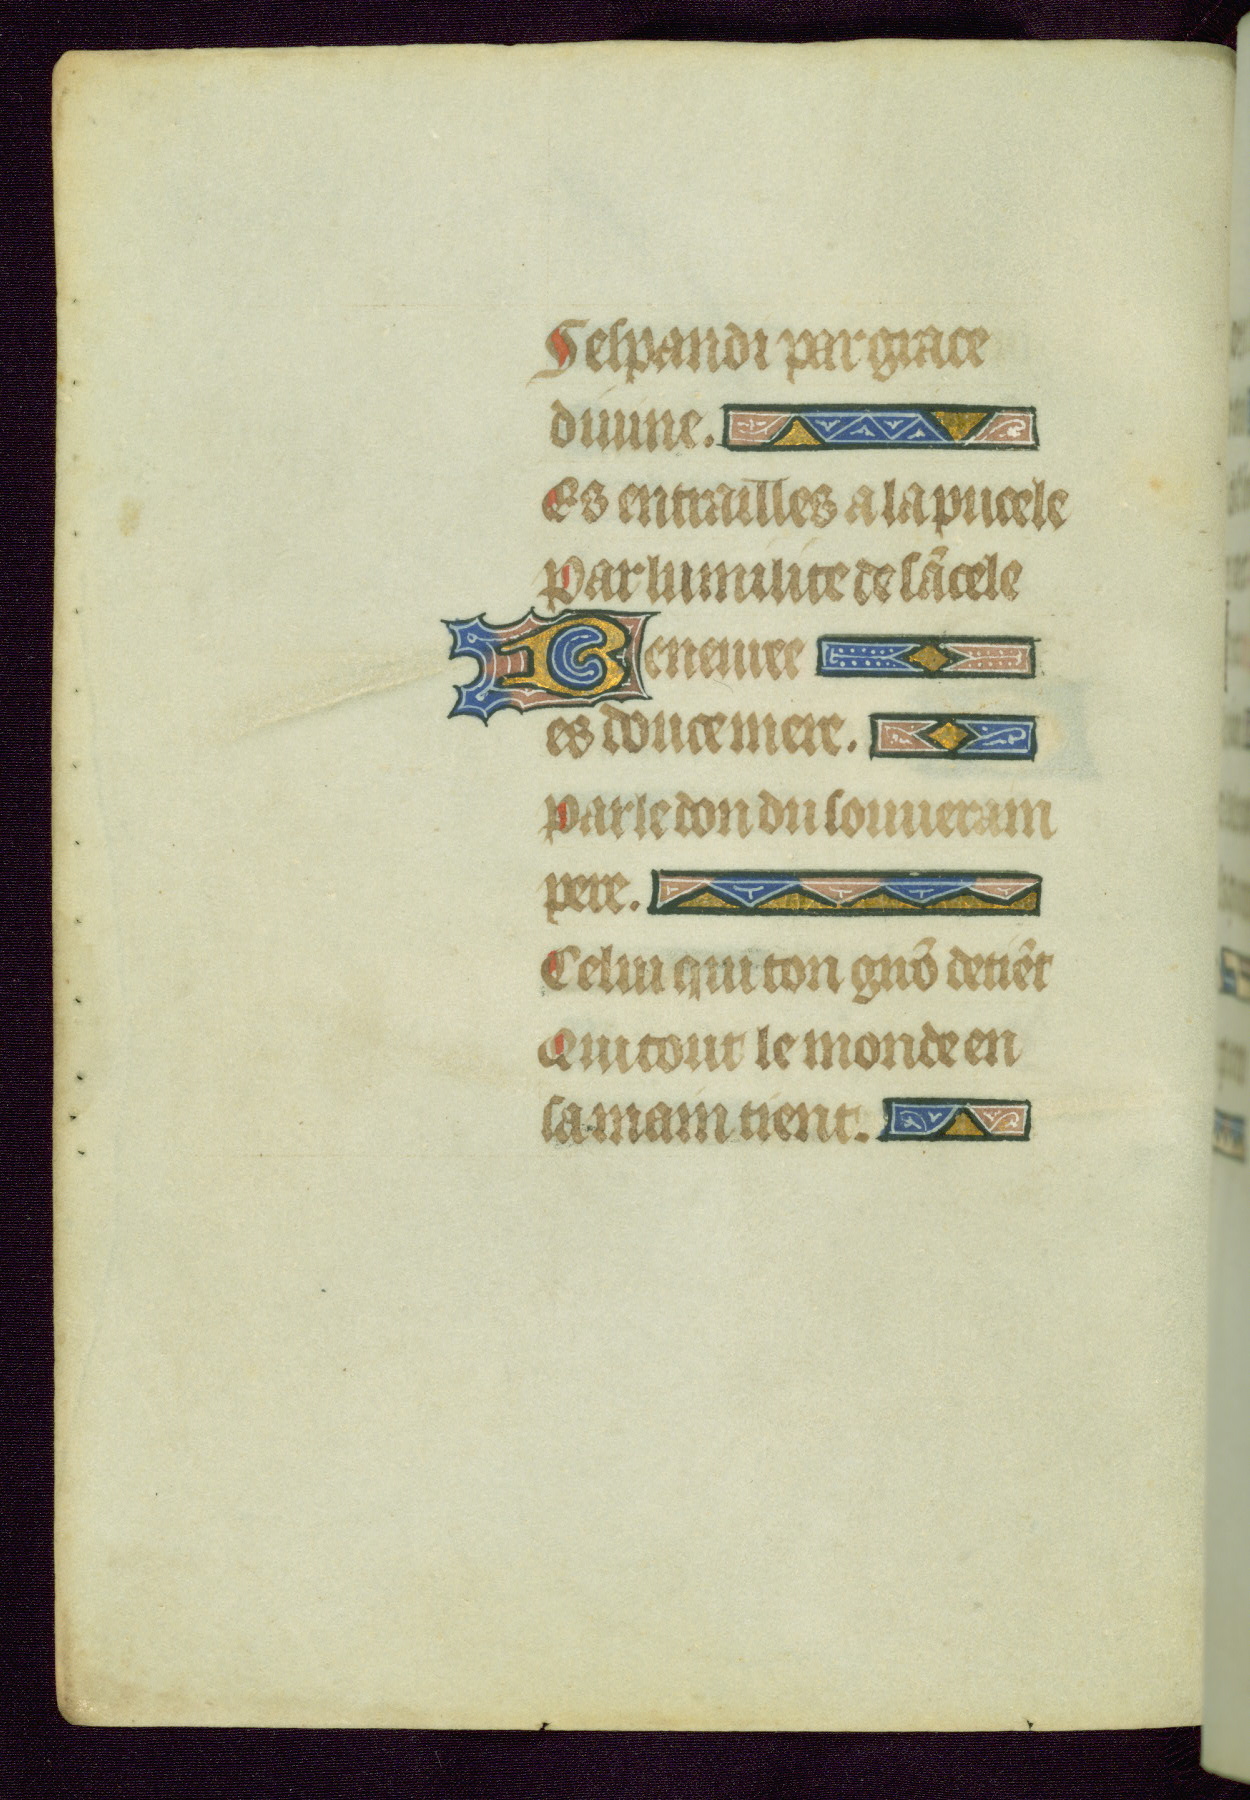 Sespandi par grace
diuine.
Es entrailles a la pucele
Par lumilite de sācele
Beneuree
es douce mere.
Par le don du souuerain
pere.
Celui qui ton gnō detiēt
Qui tout le monde en
sa main tient.